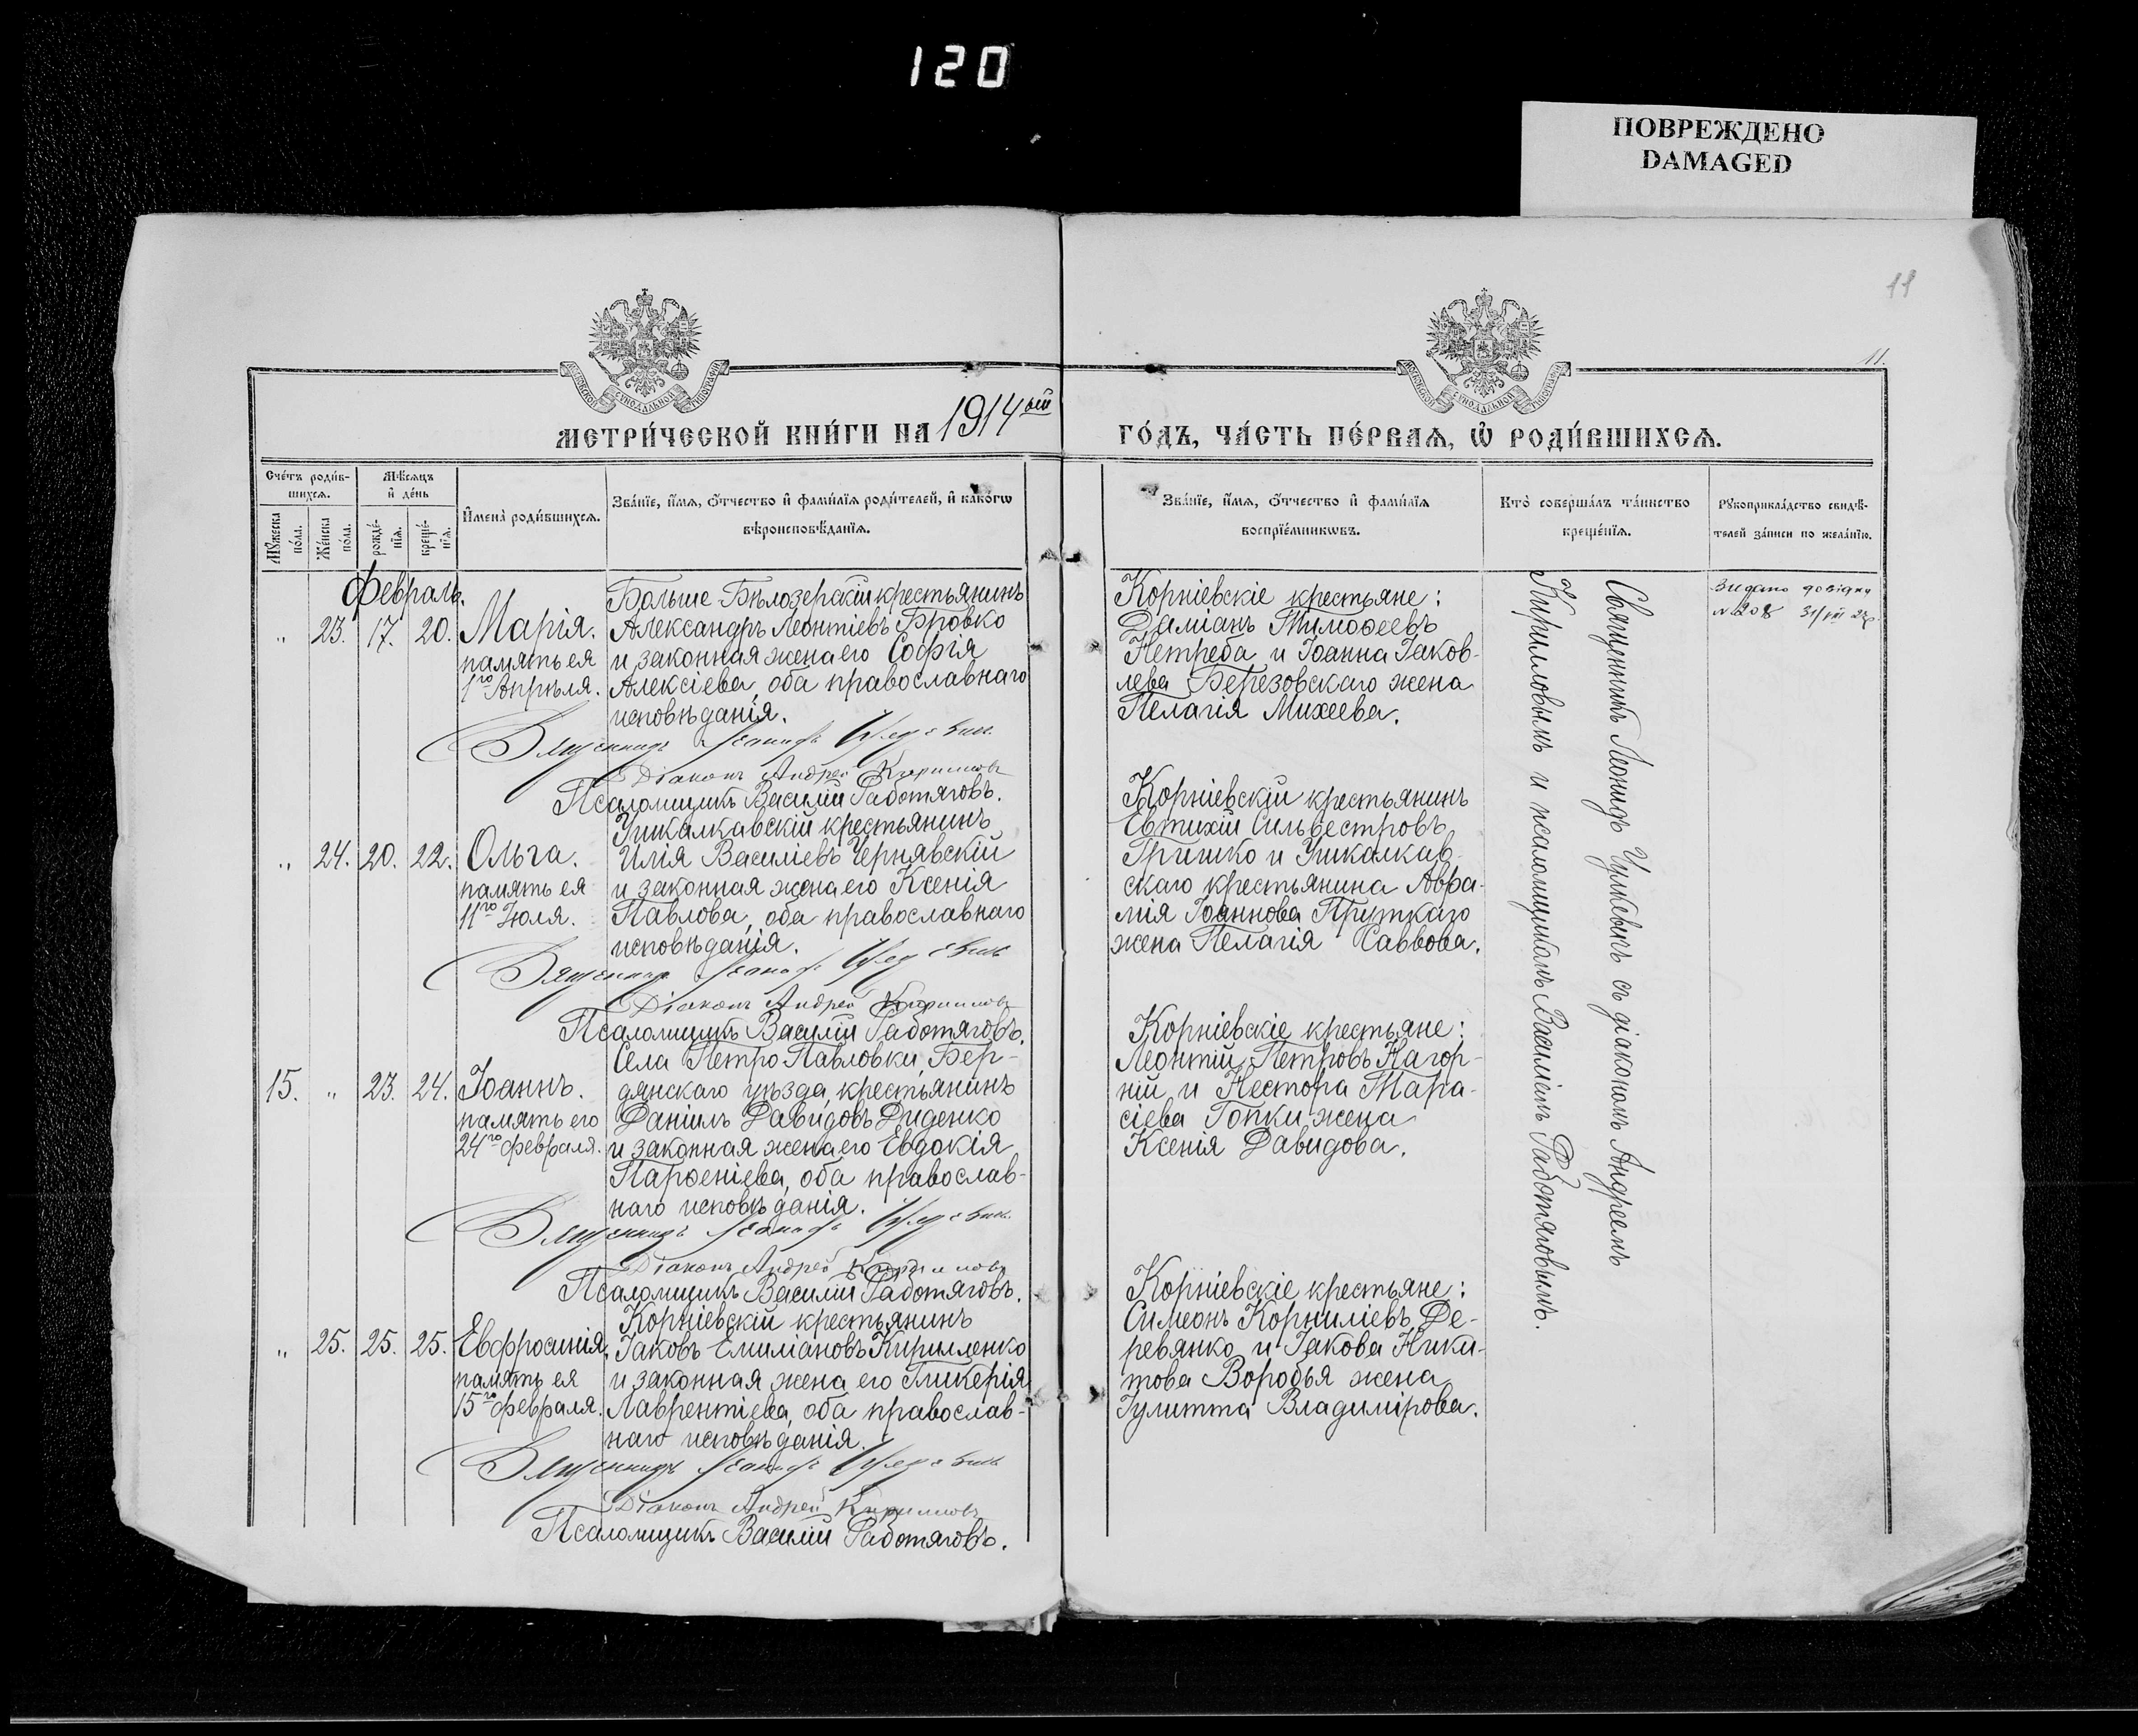 120
ПОВРЕЖДЕНО
DAMAGED
11
11.
МОСКОВСКОЙ СѴНОДАЛЬНОЙ ТИПОГРАФІИ
МОСКОВСКОЙ СѴНОДАЛЬНОЙ ТИПОГРАФІИ
МЕТРИ́ЧЕСКОЙ КНИ́ГИ НА 1914ый ГО́ДЪ, ЧА́СТЬ ПЕ́РВАѦ, Ѡ҆ РОДИ́ВШИХСѦ.
Сче́тъ роди́в-
шихсѧ.
Мѣ́сѧцъ
и҆ де́нь
Мꙋ́жеска
по́ла.
Же́нска
по́ла.
рожде́-
нїѧ.
креще́-
нїѧ.
И҆мена̀ роди́вшихсѧ.
Зва́нїе, и҆́мѧ, ѻ҆́тчество и҆ фами́лїѧ роди́телей, и҆ како́гѡ
вѣроисповѣ́данїѧ.
Зва́нїе, и҆́мѧ, ѻ҆́тчество и҆ фами́лїѧ
воспрїе́мникѡвъ.
Кто̀ соверша́лъ та́инство
креще́нїѧ.
Рꙋкоприкла́дство свидѣ́-
телей за́писи по жела́нїю.
Февраль.
„ 23. 17. 20. Марія.
память ея
1го Апрѣля.
Больше Бѣлозерскій крестьянинъ
Александръ Леонтіевъ Бровко
и законная жена его Софія
Алексіева, оба православнаго
исповѣданія.
Священникъ Леонидъ
Діаконъ Андрей Кирилловъ
Псаломщикъ Василій Работяговъ.
Корніевскіе крестьяне:
Даміанъ Тимоѳеевъ
Нетреба и Іоанна Іаков-
лева Березовскаго жена
Пелагія Михеева.
Священникъ Леонидъ с діакономъ Андреемъ
Кирилловымъ и псаломщикомъ Василіемъ Работяговымъ.
Видано довідку
№ 208 31/VIII 23р.
„ 24. 20. 22. Ольга.
память ея
11го Іюля.
Ушкалкавскій крестьянинъ
Илія Василіевъ Чернявскій
и законная жена его Ксенія
Павлова, оба православнаго
исповѣданія.
Священникъ Леонидъ
Діаконъ Андрей Кирилловъ
Псаломщикъ Василій Работяговъ.
Корніевскій крестьянинъ
Евтихій Сильвестровъ
Гришко и Ушкалкав-
скаго крестьянина Авра-
мія Іоаннова Пруткаго
жена Пелагія Саввова.
15. „ 23. 24. Іоаннъ.
память его
24го февраля.
Села Петро Павловки, Бер-
дянскаго уѣзда, крестьянинъ
Даніилъ Давидовъ Диденко
и законная жена его Евдокія
Парѳеніева, оба православ-
наго исповѣданія.
Священникъ Леонидъ
Діаконъ Андрей Кирилловъ
Псаломщикъ Василій Работяговъ.
Корніевскіе крестьяне:
Леонтій Петровъ Нагор-
ній и Нестора Тара-
сіева Гопки жена
Ксенія Давидова.
„ 25. 25. 25. Евфросинія.
память ея
15го февраля.
Корніевскій крестьянинъ
Іаковъ Емиліановъ Кириленко
и законная жена его Гликерія
Лаврентіева, оба православ-
наго исповѣданія.
Священникъ Леонидъ
Діаконъ Андрей Кирилловъ
Псаломщикъ Василій Работяговъ.
Корніевскіе крестьяне:
Симеонъ Корниліевъ Де-
ревянко и Іакова Ники-
това Воробья жена
Іулитта Владимірова.